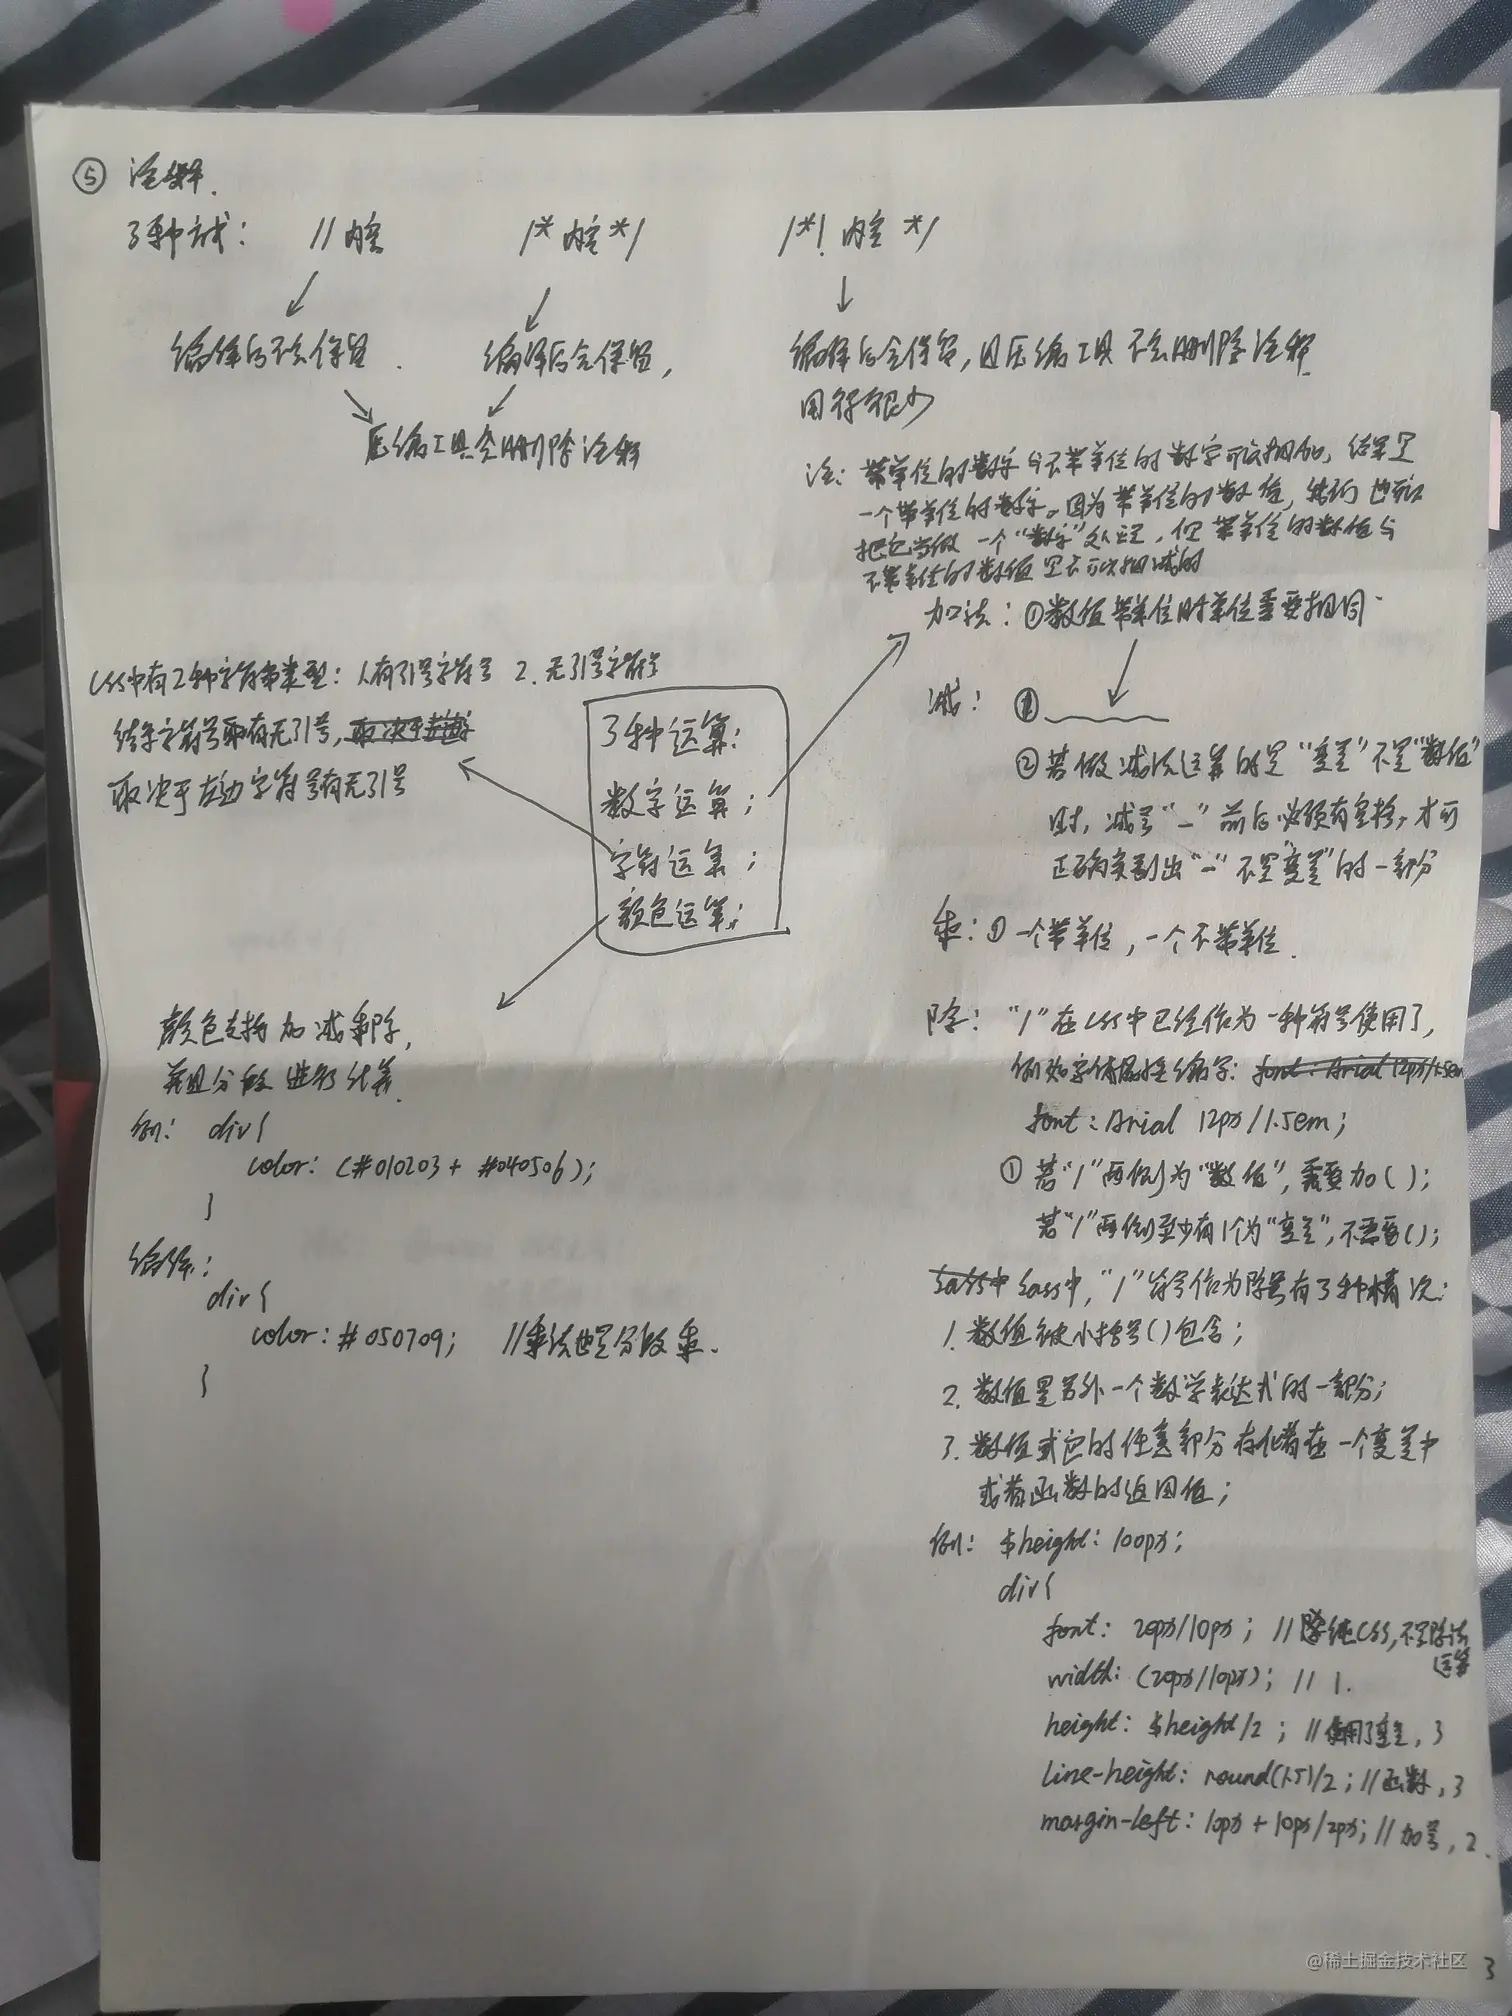 ⑤ 注释.
3种方式: //内容 /*内容*/ /*! 内容 */
编译后不会保留. 编译后会保留, 编译后会保留,且压缩工具不会删除注释.
用得很少
压缩工具会删除注释
注: 带单位的数字与不带单位的数字可以相加, 结果是
一个带单位的数字。因为带单位的数值, 我们也可以
把它当做一个“数字”处理, 但带单位的数值与
不带单位的数值是不可以相减的
加法: ①数值带单位时单位需要相同.
减: ①
②若做减法运算的是“变量”不是“数值”
时, 减号“-”前后必须有空格, 才可
正确识别出“-”不是“变量”的一部分
乘: ①一个带单位, 一个不带单位.
除: “/”在css中已经作为一种符号使用了,
例如字体属性缩写: font: Arial 12px/1.5em
font: Arial 12px/1.5em;
①若“/”两侧为“数值”, 需要加();
若“/”两侧至少有1个为“变量”, 不需要();
Sass中 Sass中, “/”符号作为除号有3种情况:
1. 数值被小括号()包含;
2. 数值是另外一个数学表达式的一部分;
3. 数值或它的任意部分存储着在一个变量中
或者函数的返回值;
例: $height: 100px;
div{
font: 20px/10px; //纯CSS, 不是除法
运算
width: (20px/10px); // 1.
height: $height/2; //使用了变量, 3
line-height: round(1.5)/2; //函数, 3
margin-left: 10px + 10px/2px; //加号, 2.
css中有2种字符串类型: 1.有引号字符号 2. 无引号字符号
结果字符号取有无引号,取决于
取决于左边字符号有无引号
3种运算:
数字运算;
字符运算;
颜色运算;
颜色支持加减乘除,
并且分段进行计算.
例: div{
color: (#010203 + #040506);
}
编译:
div{
color: #050709; //乘法也是分段乘.
}
@稀土掘金技术社区
3